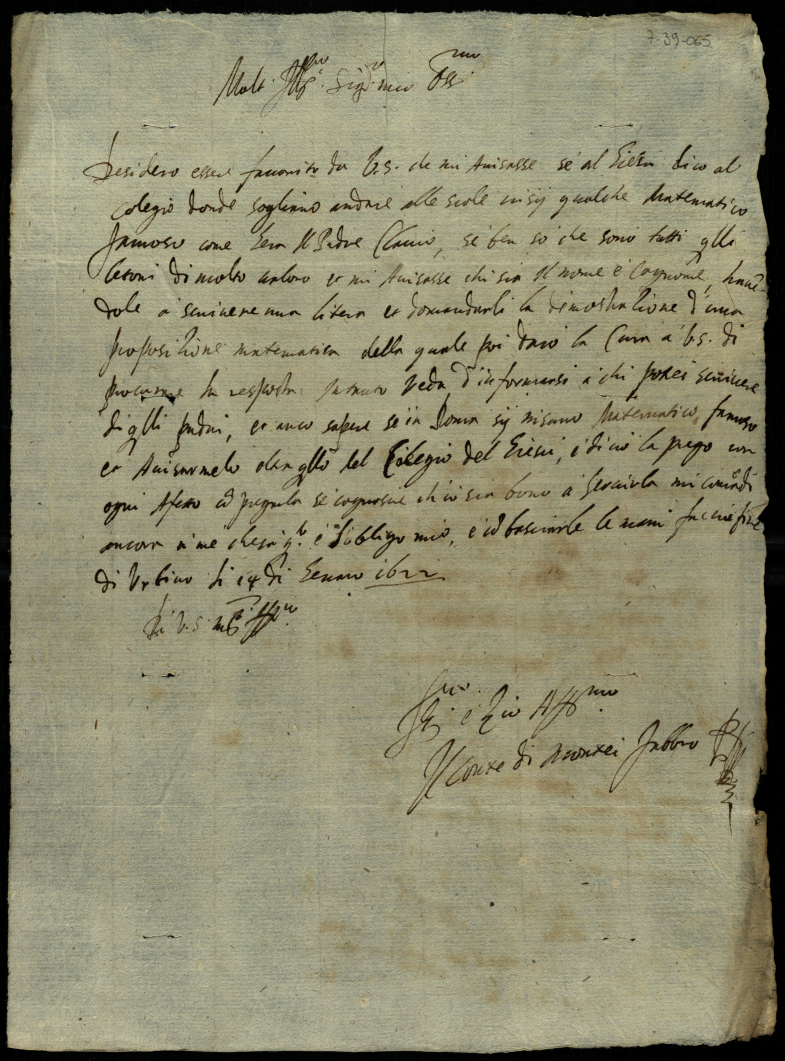 7-39-065
Molt Ill.re Sig.r mio Oss.mo
Desidero essere favorito da V.S. che mi Avisasse se al Giesù dico al
Colegio donde sogliano andare alle scole vi sij qualche Matematico
famoso come Hera il Padre Clavio, se ben so che sono tutti glli
letori di molto valore et mi Avisasse chi sia il nome è Cognome, have-
dole à scrivere una litera et domandarli la dimostratione d'una
propositione matematica della quale poi darò la Cura a V.S. di
procurarne la resposta per tanto veda d'informarsi à chi potei scrivere
di glli padri, et anco sapere se in Roma sij nisuno Matematico famoso
et Avisarmelo oltra gllo del Colegio del Giesù, è di ciò la prego con
ogni Afetto se cognosce ch'io sia bono à servirla mi comādi
ancora à me che sarà è l'obbligo mio, è cō basciarle le mani facio fine
di Urbino li 14 di Genaro 1622
Di V.S. m.to Ill.re
è Zio Aff.mo
Il Conte di Montei Fabbro